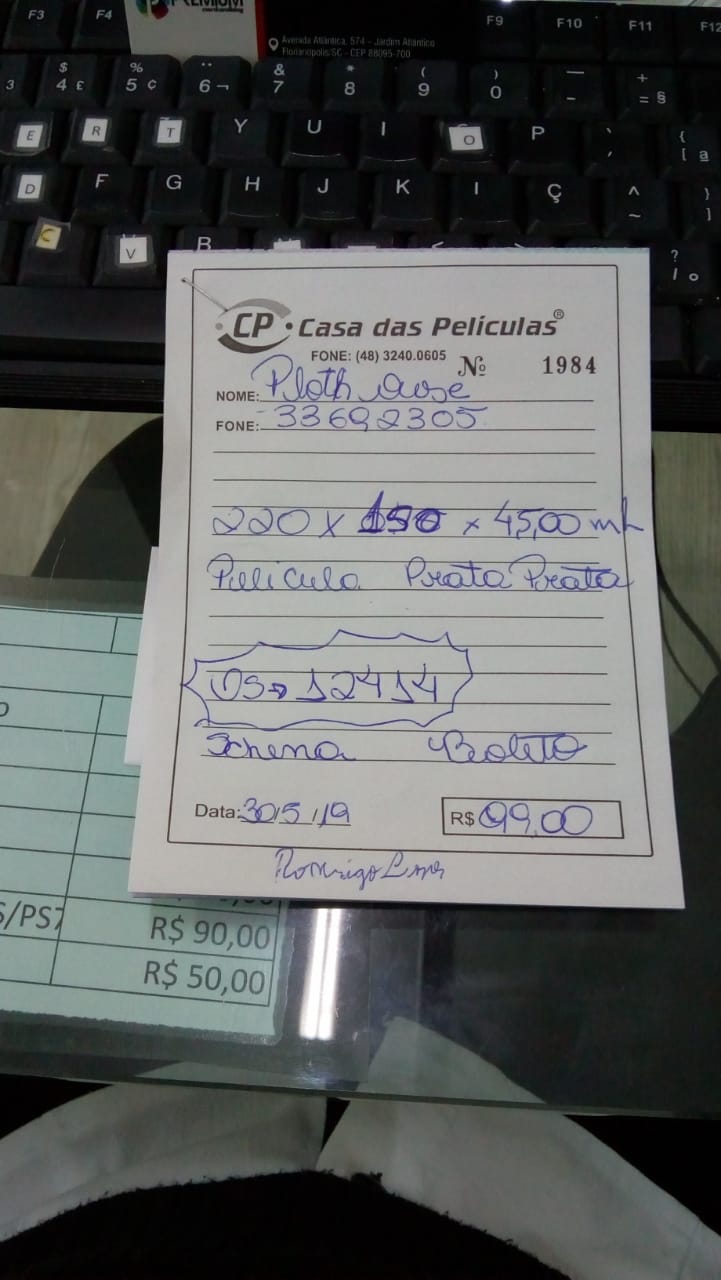 F3 F4 F9 F10 F11 F12
PREMIUM
Avenida Atlântica, 574 - Jardim Atlântico
Florianópolis/SC - CEP 88095-700
3 $ 4 £ % 5 ¢ ¨ 6 ¬ & 7 * 8 ( 9 ) 0 — - + = §
E R T Y U I O P ` ´ { [ ª
D F G H J K Ç ^ ~ } ]
C V B < > ? / °
CP Casa das Películas®
FONE: (48) 3240.0605 Nº 1984
NOME: Ploth
FONE: 33692305
220 x 150 x 45,00 ml
Pelicula Prata Prata
OS→ 12414
Schena Boleto
Data: 30/5/19 R$ 99,00
Rodrigo
S/PS7 R$ 90,00
R$ 50,00